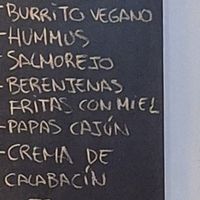 -BURRITO VEGANO
-HUMMUS
-SALMOREJO
-BERENJENAS
FRITAS CON MIEL
-PAPAS CAJÚN
-CREMA DE
CALABACÍN